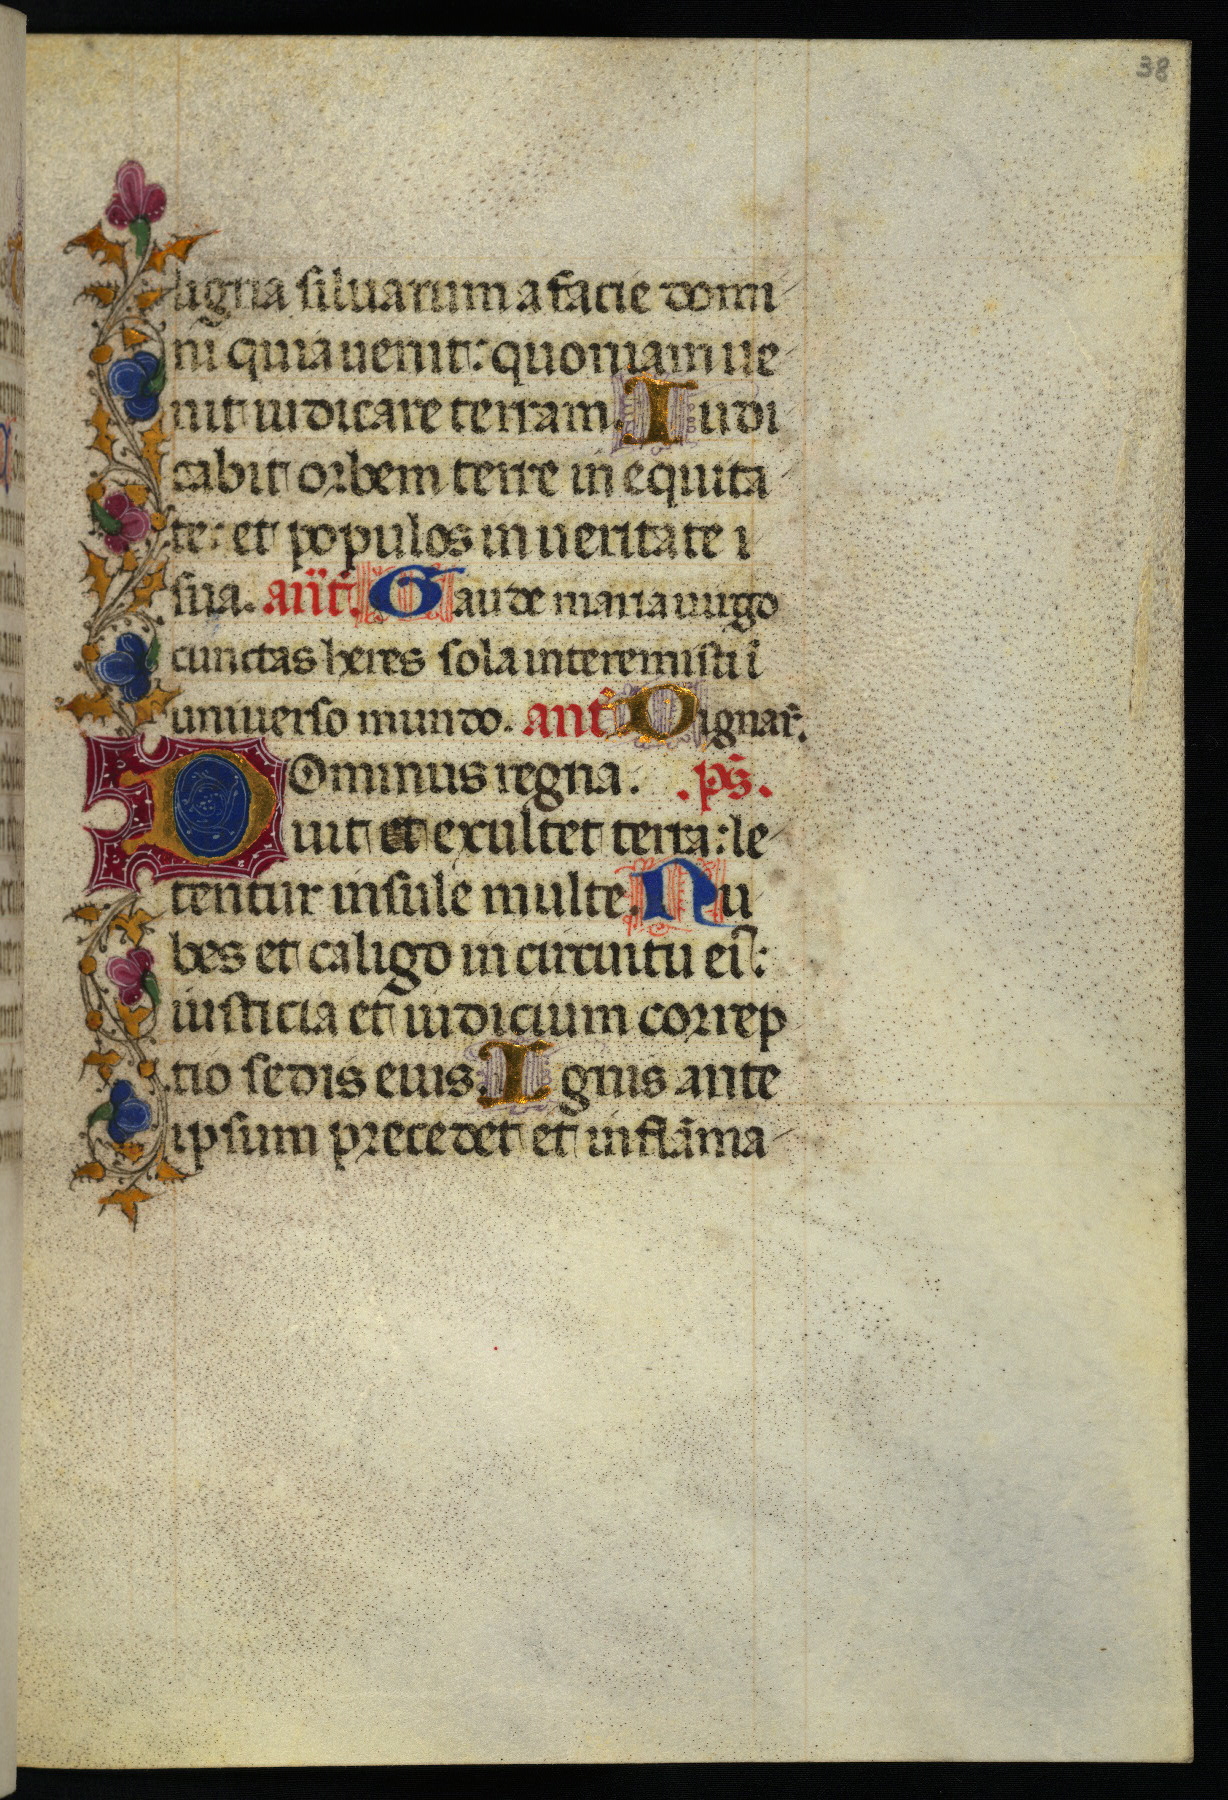 38
ligna siluarum a facie domi
ni quia uenit: quoniam ue
nit iudicare terram. Iudi
cabit orbem terre in equita
te: et populos in ueritate i
sua. añt. Gaude maria uirgo
cunctas heres sola interemisti ī
uniuerso mundo. ant̃ Dignar̃.
DOminus regna. .ps̃.
uit et exultet terra: le
tentur insule multe. Nu
bes et caligo in circuitu ei᷒:
iusticia et iudicium correp
tio sedis eius. Ignis ante
ipsum precedet et inflāma